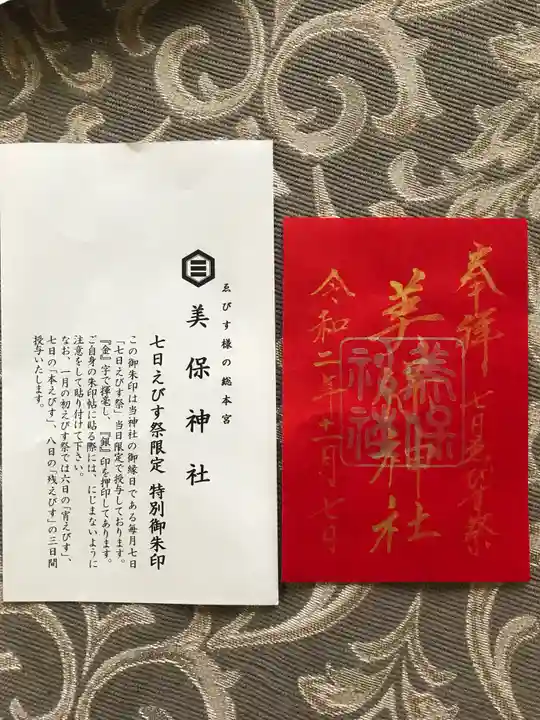 ゑびす様の総本宮
美保神社
七日えびす祭限定 特別御朱印
この御朱印は当神社の御縁日である毎月七日
「七日えびす祭」当日限定で授与しております。
『金』字で揮毫し、『銀』印を押印してあります。
ご自身の朱印帖に貼る際には、にじまないように
注意をして貼り付けて下さい。
なお、一月の初えびす祭では六日の「宵えびす」、
七日の「本えびす」、八日の「残えびす」の三日間
授与いたします。
奉拝 七日えびす祭
美保神社
美保神社
令和二年十一月七日